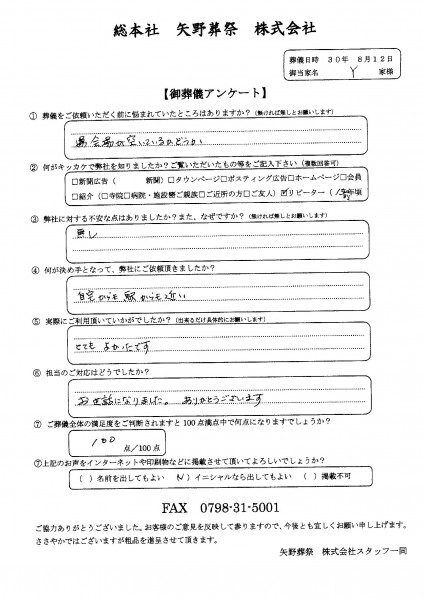 総本社 矢野葬祭 株式会社
葬儀日時 30年 8月12日
御当家名 Y 家様
【御葬儀アンケート】
① 葬儀をご依頼いただく前に悩まれていたところはありますか？(無ければ無しとお願いします)
会場が空いているかどうか
② 何がキッカケで弊社を知りましたか？ご覧いただいたもの等をご記入下さい(複数回答可)
□新聞広告( 新聞)□タウンページ□ポスティング広告□ホームページ□会員
□紹介(□寺院□病院・施設様ご親族□ご近所の方□ご友人)☑リピーター( 年前頃
③ 弊社に対する不安な点はありましたか？また、なぜですか？(無ければ無しとお願いします)
無し
④ 何が決め手となって、弊社にご依頼頂きましたか？
自宅からも駅からも近い
⑤ 実際にご利用頂いていかがでしたか？(出来るだけ具体的にお願いします)
とても よかったです
⑥ 担当のご対応はどうでしたか？
お世話になりました。 ありがとうございます
⑦ ご葬儀全体の満足度をご判断されますと100点満点中で何点になりますでしょうか？
100 点/100点
⑦上記のお声をインターネットや印刷物などに掲載させて頂いてよろしいでしょうか？
( )名前を出してもよい ( )イニシャルなら出してもよい ( )掲載不可
FAX 0798-31-5001
ご協力ありがとうございました。お客様のご意見を反映して参りますので、今後とも宜しくお願い申し上げます。
ささやかではございますが粗品を進呈させて頂きます。
矢野葬祭 株式会社スタッフ一同